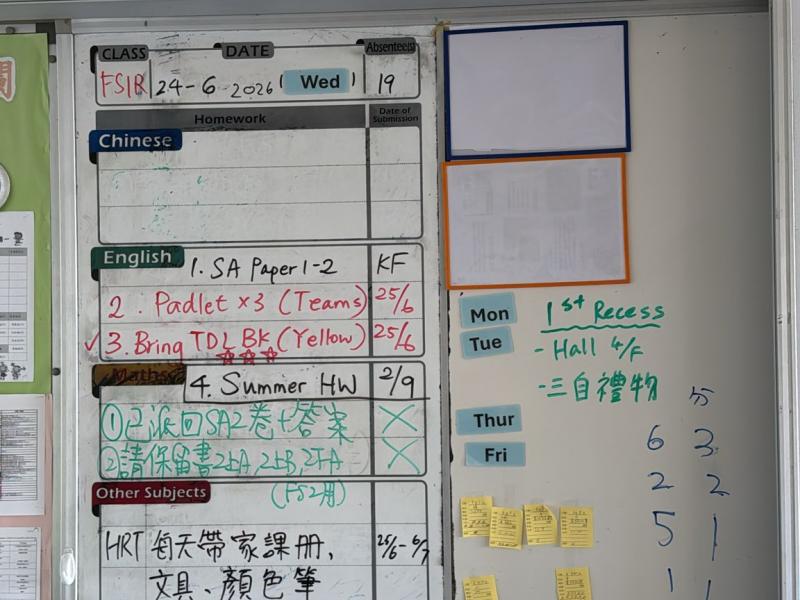 CLASS DATE Absentee(s)
24-6-2026 (Wed) 19
Homework Date of Submission
Chinese
English 1. SA Paper 1-2 KF
2. Padlet ×3 (Teams) 25/6
✓ 3. Bring TDL BK (Yellow) 25/6
☆☆☆
Maths 4. Summer HW 2/9
①已派回SA2卷+答案 ×
②請保留書2上A, 2上B, 2下A ×
Other Subjects
HRT 每天帶家課冊, 25/6-6/7
文具、顏色筆
Mon
Tue
Thur
Fri
1st Recess
- Hall 4/F
- 三自禮物
6 3
2 2
5 1
1 1